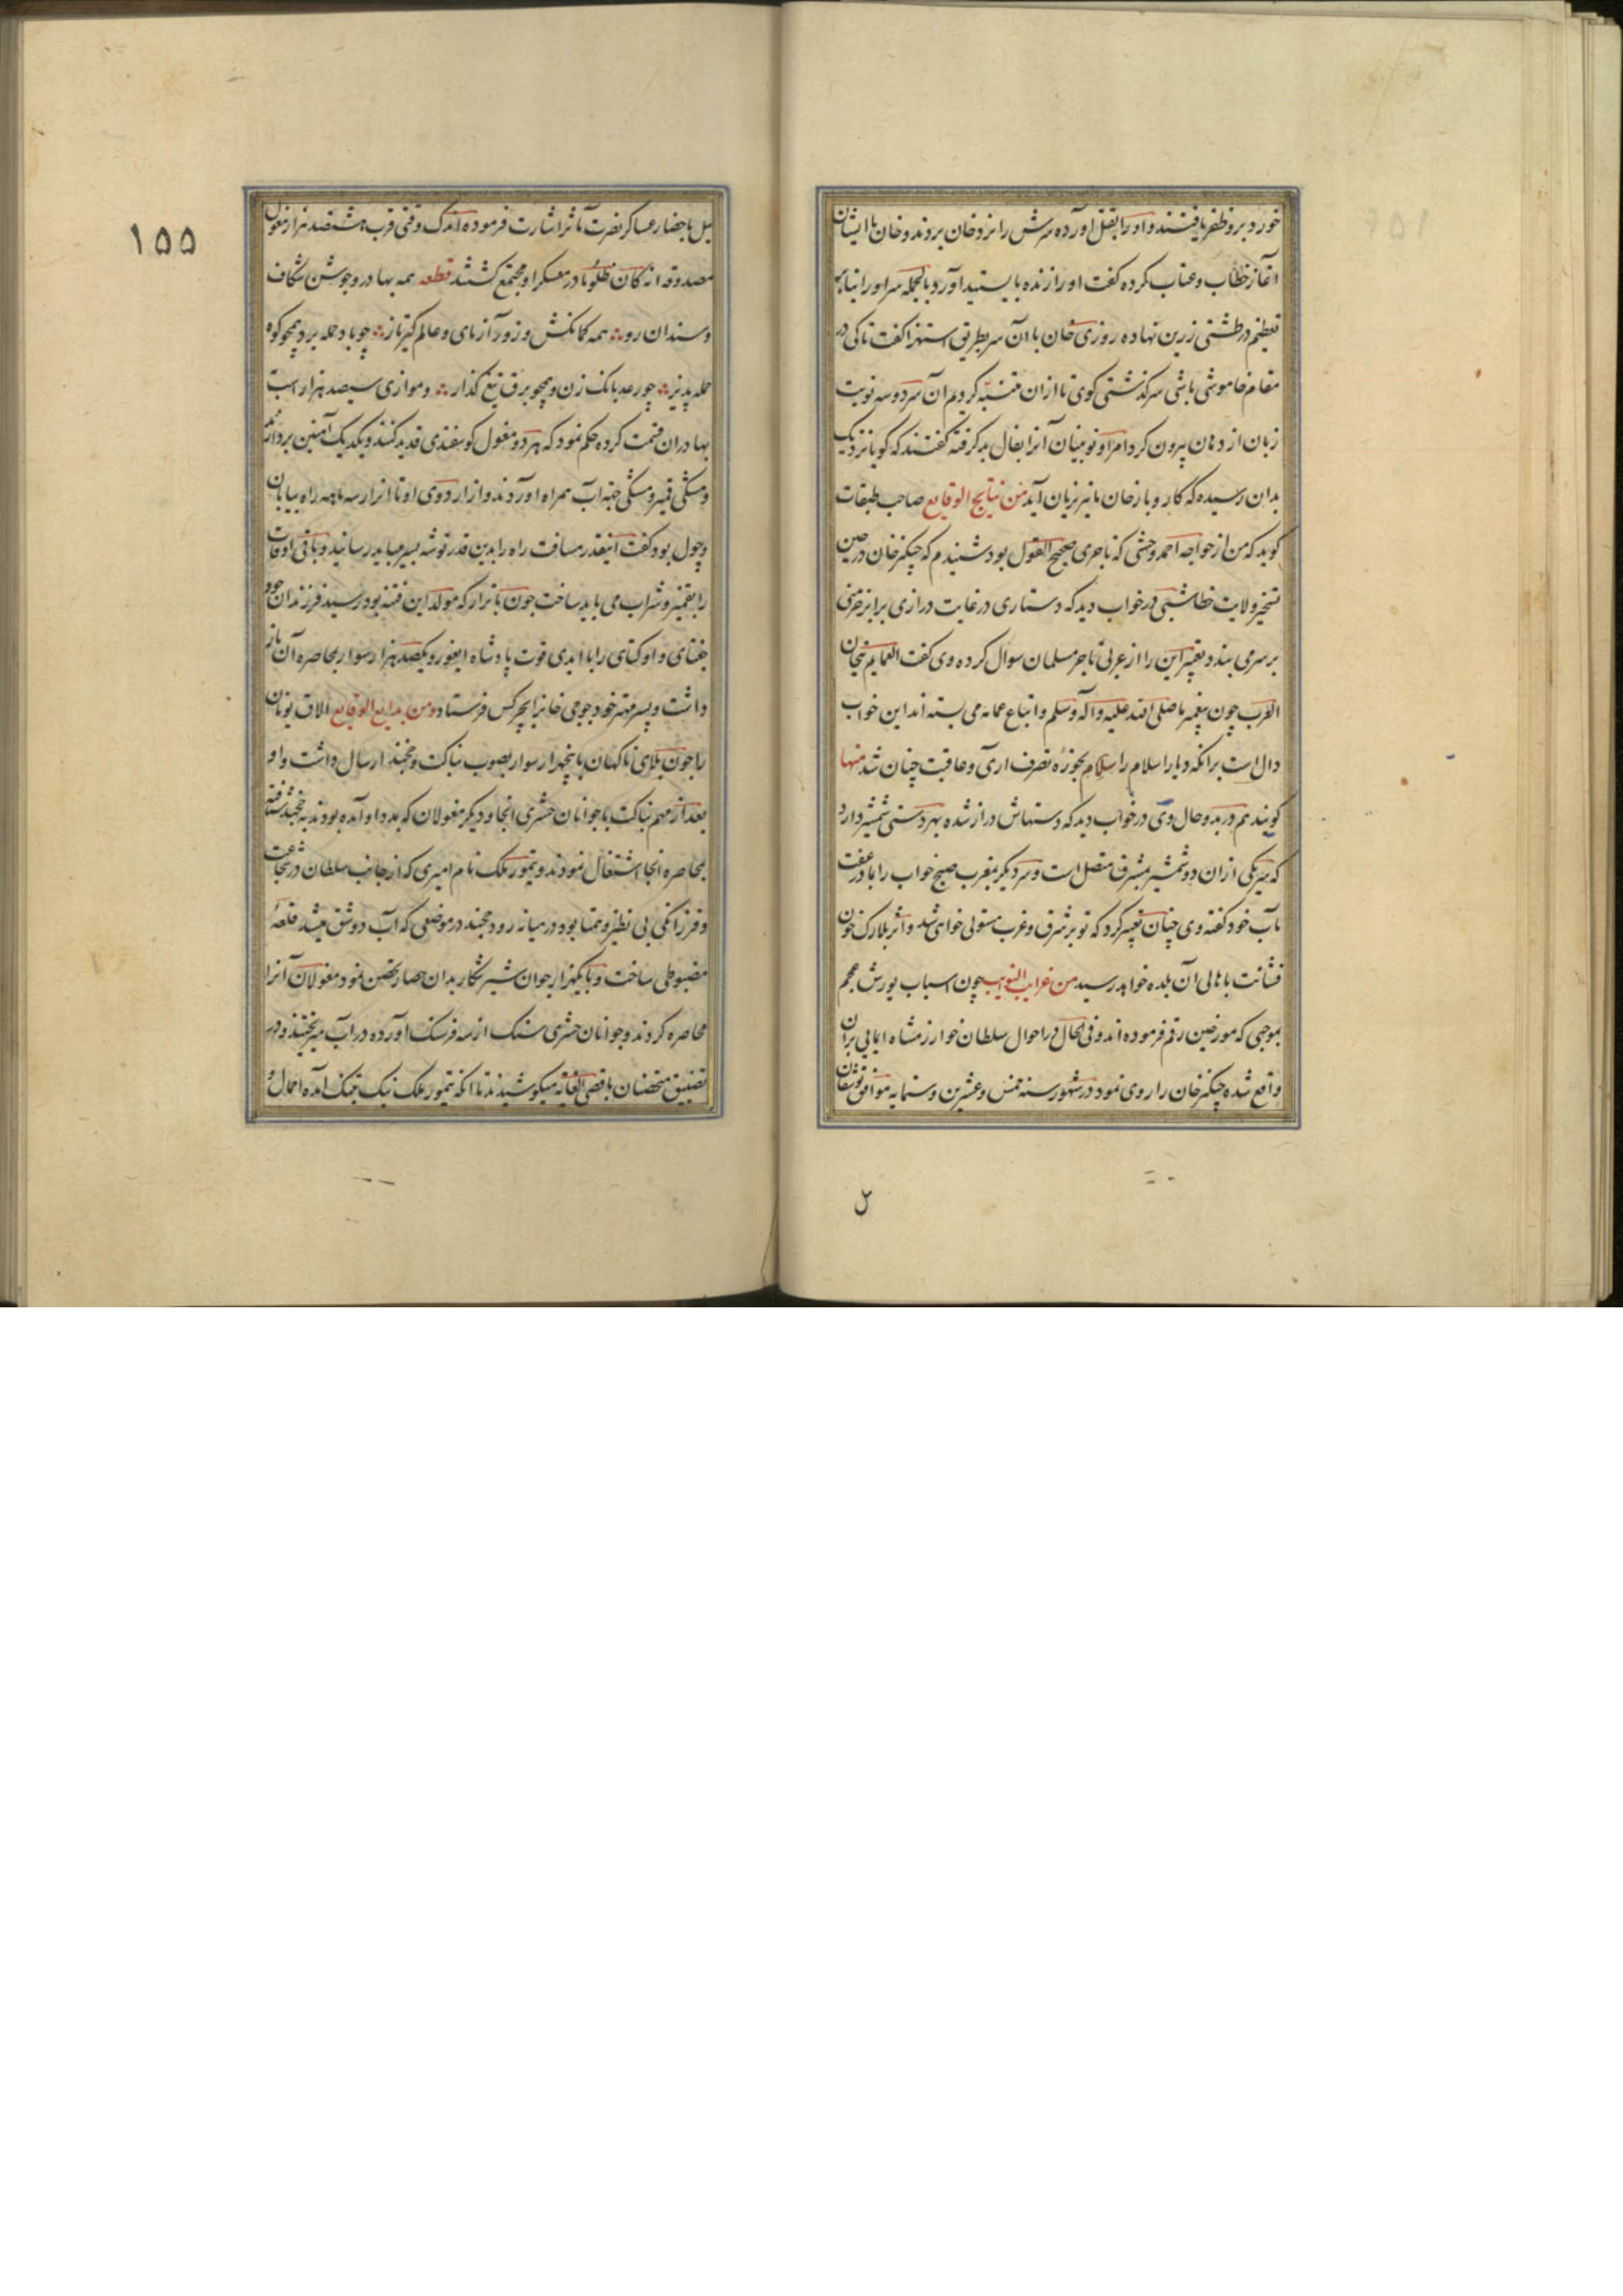 خورد برو ظفر یافتند و او را بقتل آورده سرش را نزد خان بردند و خان با ایشان
آغاز خطاب و عتاب کرده گفت او را زنده بایستید آورد بالجمله سر او را بنابر
تعظیم در طشتی زرین نهاده روزی خان با آن سر بطریق استهزا گفت تا کی در
مقام خاموشی باشی سرگذشتی گوی تا از ان متنبه گردیم آن سر دو سه نوبت
زبان از دهان بیرون کرد امرا و نوینان آنرا بفال بد گرفته گفتند که گویا نزدیک
بدان رسیده که کار و بار خان نیز بزیان آید من نتایج الوقایع صاحب طبقات
گوید که من از خواجه احمد وخشی که تاجری صحیح القول بود شنیدم که چنگیز خان در حین
تسخیر ولایت خطا شبی در خواب دید که دستاری در غایت درازی برابر خرمنی
بر سر می بندد تعبیر این را از عربی تاجر مسلمان سوال کرده وی گفت العمایم تیجان
العرب چون پیغمبر ما صلی الله علیه و آله و سلم و اتباع عمامه می بسته اند این خواب
دال است برانکه دیار اسلام را بحوزه تصرف اری و عاقبت چنان شد منها
گویند هم در بدو حال وی در خواب دید که دستهاش دراز شده بهر دستی شمشیر دارد
که سر یکی از ان دو شمشیر بمشرق متصل است و سر دیگر بمغرب صبح خواب را با مادر عفت
مآب خود گفته وی چنان تعبیر کرد که تو بر شرق و غرب مستولی خواهی شد و اثر بلارک خون
فشانت باهالی آن بلده خواهد رسید من غرایب النوایب چون اسباب یورش عجم
بموجبی که مورخین رقم فرموده اند و فی الحال در احوال سلطان خوارزمشاه ایمایی بران
واقع شده چنگیز خان را روی نمود در شهور سنه خمس و عشرین و ستمایه موافق توشقان
ل
۱۵۵
ئیل باحضار عساکر نصرت مآثر اشارت فرموده اندک وقتی قرب هشتصد هزار مغول
مصدوقه انه کان ظلوما در معسکر او مجتمع گشتند قطعه همه بهادر و جوشن شکاف
و سندان رو همه کمانکش و زور آزمای و عالم گیر تاز چو باد حمله بر و همچو کوه
حمله پذیر چو رعد بانگ زن و همچو برق تیغ گذار و موازی سیصد هزار است
بهادران قسمت کرده حکم نمود که هر دو مغول گوسفندی قدید کنند و یک دیگ آهنین بردارند
و مشکی قمیز و مشکی جهه آب همراه آورند و از اردوی او تا اترار سه ماهه راه بیابان
و چول بود گفت اینقدر مسافت راه را بدین قدر توشه بسر میباید رسانید و باقی اوقات
را بقمیز و شراب می باید ساخت چون باترار که مولد این فتنه بود رسید فرزندان خود
جغتای و اوکتای را با ایدی قوت پادشاه ایغور و یکصد هزار سوار بمحاصره آن باز
داشت و پسر مهتر خود جوجی خانرا بجرکس فرستاد و من بدایع الوقایع الاق نویان
را چون بلای ناگهان با پنجهزار سوار بصوب بناکت و خجند ارسال داشت و او
بعد از مهم بناکت با جوانان حشری انجا و دیگر مغولان که بمدد او آمده بودند به خجند شتافته
بمحاصره انجا اشتغال نمودند و تیمور ملک نام امیری که از جانب سلطان در شجاعت
و فرزانگی بی نظیر و همتا بود در میانه رود خجند در موضعی که آب دو شق میشد قلعه
مضبوطی ساخت و با یکهزار جوان شیر شکار بدان حصار تحصن نمود مغولان آنرا
محاصره کردند و جوانان حشری سنک از سه فرسنک آورده در آب میریختند و در
تضییق متحصنان باقصی الغایه میکوشیدند تا آنکه تیمور ملک نیک بتنک آمده احمال و